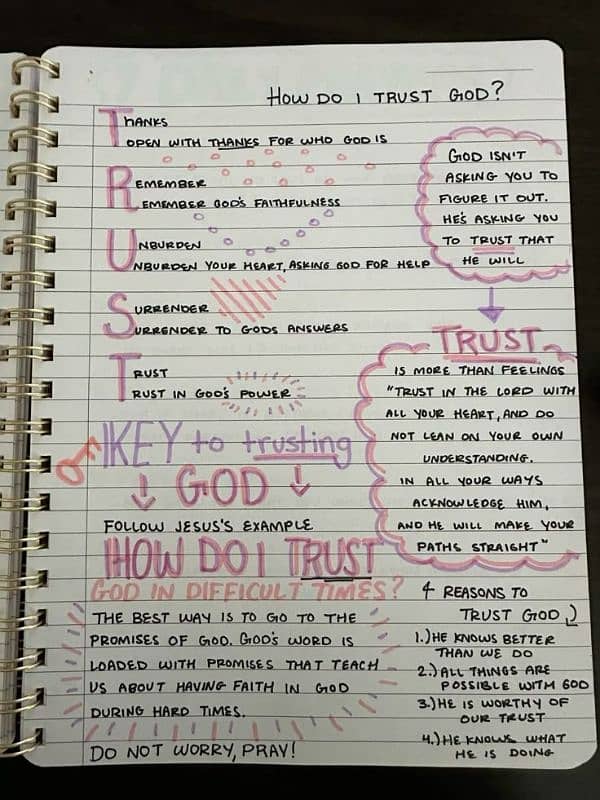 HOW DO I TRUST GOD?
THANKS
OPEN WITH THANKS FOR WHO GOD IS
REMEMBER
REMEMBER GOD'S FAITHFULNESS
UNBURDEN
UNBURDEN YOUR HEART, ASKING GOD FOR HELP
SURRENDER
SURRENDER TO GODS ANSWERS
TRUST
TRUST IN GOD'S POWER
GOD ISN'T
ASKING YOU TO
FIGURE IT OUT.
HE'S ASKING YOU
TO TRUST THAT
HE WILL
TRUST
IS MORE THAN FEELINGS
"TRUST IN THE LORD WITH
ALL YOUR HEART, AND DO
NOT LEAN ON YOUR OWN
UNDERSTANDING.
IN ALL YOUR WAYS
ACKNOWLEDGE HIM,
AND HE WILL MAKE YOUR
PATHS STRAIGHT"
KEY to trusting
GOD
FOLLOW JESUS'S EXAMPLE
HOW DO I TRUST
GOD IN DIFFICULT TIMES?
THE BEST WAY IS TO GO TO THE
PROMISES OF GOD. GOD'S WORD IS
LOADED WITH PROMISES THAT TEACH
US ABOUT HAVING FAITH IN GOD
DURING HARD TIMES.
DO NOT WORRY, PRAY!
4 REASONS TO
TRUST GOD
1.) HE KNOWS BETTER
THAN WE DO
2.) ALL THINGS ARE
POSSIBLE WITH GOD
3.) HE IS WORTHY OF
OUR TRUST
4.) HE KNOWS WHAT
HE IS DOING